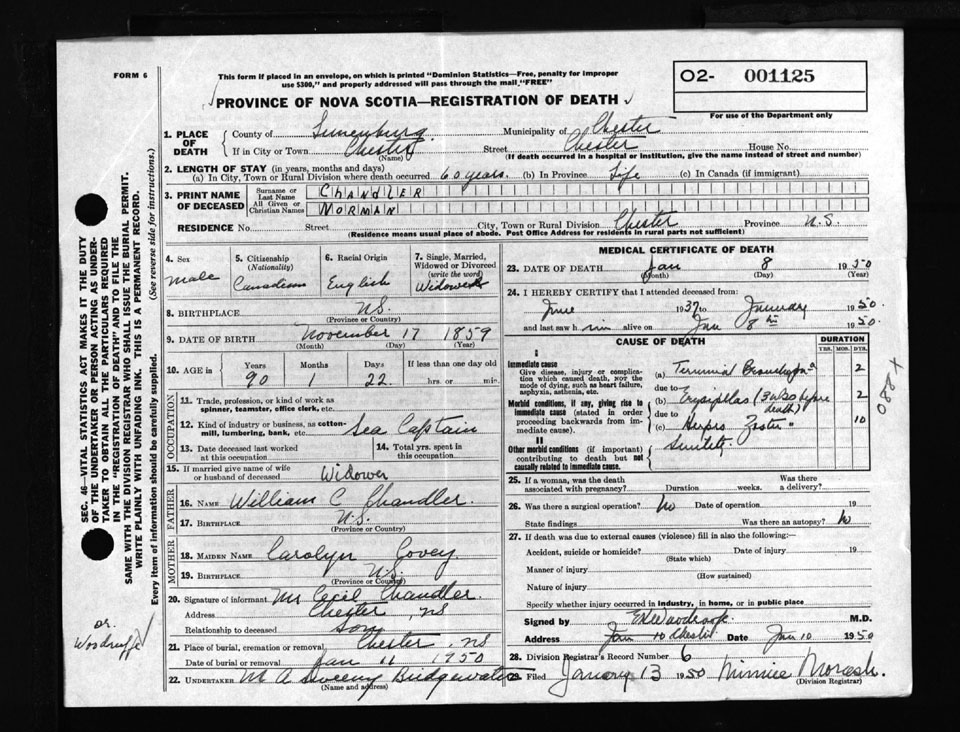 FORM 6
This form if placed in an envelope, on which is printed "Dominion Statistics—Free, penalty for improper
use $300," and properly addressed will pass through the mail "FREE"
O2- 001125
For use of the Department only
PROVINCE OF NOVA SCOTIA—REGISTRATION OF DEATH
1. PLACE OF DEATH
County of Lunenburg Municipality of Chester
If in City or Town Chester Street Chester House No.
(Name) (If death occurred in a hospital or institution, give the name instead of street and number)
2. LENGTH OF STAY (in years, months and days)
(a) In City, Town or Rural Division where death occurred 60 years. (b) In Province Life (c) In Canada (if immigrant)
3. PRINT NAME OF DECEASED
Surname or Last Name CHANDLER
All Given or Christian Names NORMAN
RESIDENCE No. Street City, Town or Rural Division Chester Province N.S.
(Residence means usual place of abode. Post Office Address for residents in rural parts not sufficient)
4. Sex Male
5. Citizenship (Nationality) Canadian
6. Racial Origin English
7. Single, Married, Widowed or Divorced (write the word) Widowed
8. BIRTHPLACE NS.
(Province or Country)
9. DATE OF BIRTH November 17 1859
(Month) (Day) (Year)
10. AGE in Years 90 Months 1 Days 22 If less than one day old
hrs. or min.
OCCUPATION
11. Trade, profession, or kind of work as
spinner, teamster, office clerk, etc.
12. Kind of industry or business, as cotton-
mill, lumbering, bank, etc. Sea Captain
13. Date deceased last worked at this occupation
14. Total yrs. spent in this occupation
15. If married give name of wife
or husband of deceased Widower
FATHER
16. NAME William C Chandler.
17. BIRTHPLACE N.S.
(Province or Country)
MOTHER
18. MAIDEN NAME Carolyn Covey
19. BIRTHPLACE N.S.
(Province or Country)
20. Signature of informant Mr Cecil Chandler.
Address Chester, NS
Relationship to deceased Son
21. Place of burial, cremation or removal Chester, NS
Date of burial or removal Jan 11 1950
22. UNDERTAKER M A Sweeny Bridgewater
(Name and address)
MEDICAL CERTIFICATE OF DEATH
23. DATE OF DEATH Jan 8 1950
(Month) (Day) (Year)
24. I HEREBY CERTIFY that I attended deceased from:
June 1937 to January 1950
and last saw him alive on Jan 8th 1950
CAUSE OF DEATH
DURATION
YRS. MOS. DYS.
I
Immediate cause
Give disease, injury or complication which caused death, NOT the mode of dying, such as heart failure, asphyxia, asthenia, etc.
(a) Terminal 2
due to
Morbid conditions, if any, giving rise to immediate cause (stated in order proceeding backwards from immediate cause).
(b) Erysipelas before death) 2
due to
(c) Herpes Zoster " 10
II
Other morbid conditions (if important) contributing to death but not causally related to immediate cause.
Senility
x 088
25. If a woman, was the death
associated with pregnancy? Duration weeks. Was there a delivery?
26. Was there a surgical operation? No Date of operation 19
State findings Was there an autopsy? No
27. If death was due to external causes (violence) fill in also the following:—
Accident, suicide or homicide? Date of injury 19
(State which)
Manner of injury
(How sustained)
Nature of injury
Specify whether injury occurred in industry, in home, or in public place
Signed by M.D.
Address Chester Date Jan 10 1950
Jan 10
28. Division Registrar's Record Number 6
29. Filed January 13 1950 Minnie Morash.
(Division Registrar)
SEC. 46—VITAL STATISTICS ACT MAKES IT THE DUTY
OF THE UNDERTAKER OR PERSON ACTING AS UNDER-
TAKER TO OBTAIN ALL THE PARTICULARS REQUIRED
IN THE "REGISTRATION OF DEATH" AND TO FILE THE
SAME WITH THE DIVISION REGISTRAR WHO SHALL ISSUE THE BURIAL PERMIT.
WRITE PLAINLY WITH UNFADING INK. THIS IS A PERMANENT RECORD.
Every item of information should be carefully supplied. (See reverse side for instructions.)
Dr.
Woodruffe